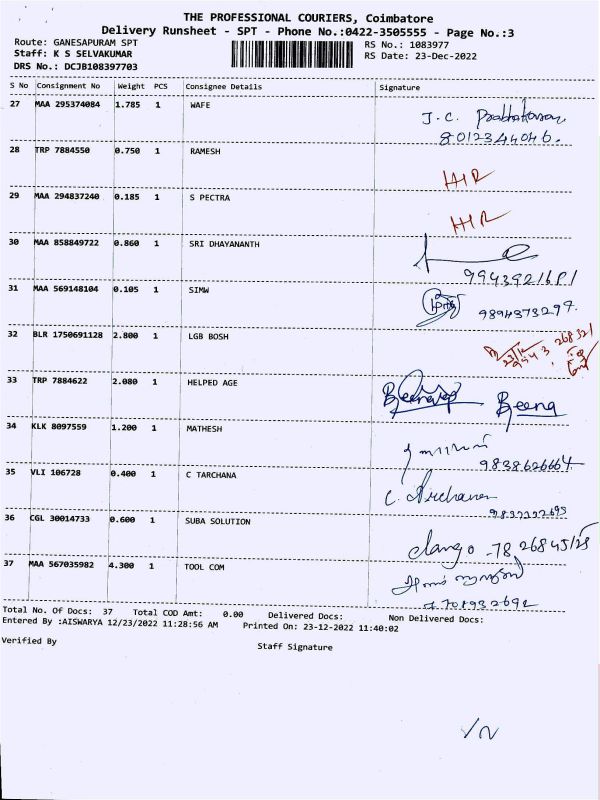 THE PROFESSIONAL COURIERS, Coimbatore
Delivery Runsheet - SPT - Phone No.:0422-3505555 - Page No.:3
Route: GANESAPURAM SPT RS No.: 1083977
Staff: K S SELVAKUMAR RS Date: 23-Dec-2022
DRS No.: DCJB108397703
S No Consignment No Weight PCS Consignee Details Signature
27 MAA 295374084 1.785 1 WAFE J.C. Prabhakaran
8012344046.
28 TRP 7884550 0.750 1 RAMESH
29 MAA 294837240 0.185 1 S PECTRA
30 MAA 858849722 0.860 1 SRI DHAYANANTH
31 MAA 569148104 0.105 1 SIMW
9894373297.
32 BLR 1750691128 2.800 1 LGB BOSH
33 TRP 7884622 2.080 1 HELPED AGE Beena
34 KLK 8097559 1.200 1 MATHESH
9838626664
35 VLI 106728 0.400 1 C TARCHANA C. Archana
36 CGL 30014733 0.600 1 SUBA SOLUTION
Elango
37 MAA 567035982 4.300 1 TOOL COM
Total No. Of Docs: 37 Total COD Amt: 0.00 Delivered Docs: Non Delivered Docs:
Entered By :AISWARYA 12/23/2022 11:28:56 AM Printed On: 23-12-2022 11:40:02
Verified By Staff Signature